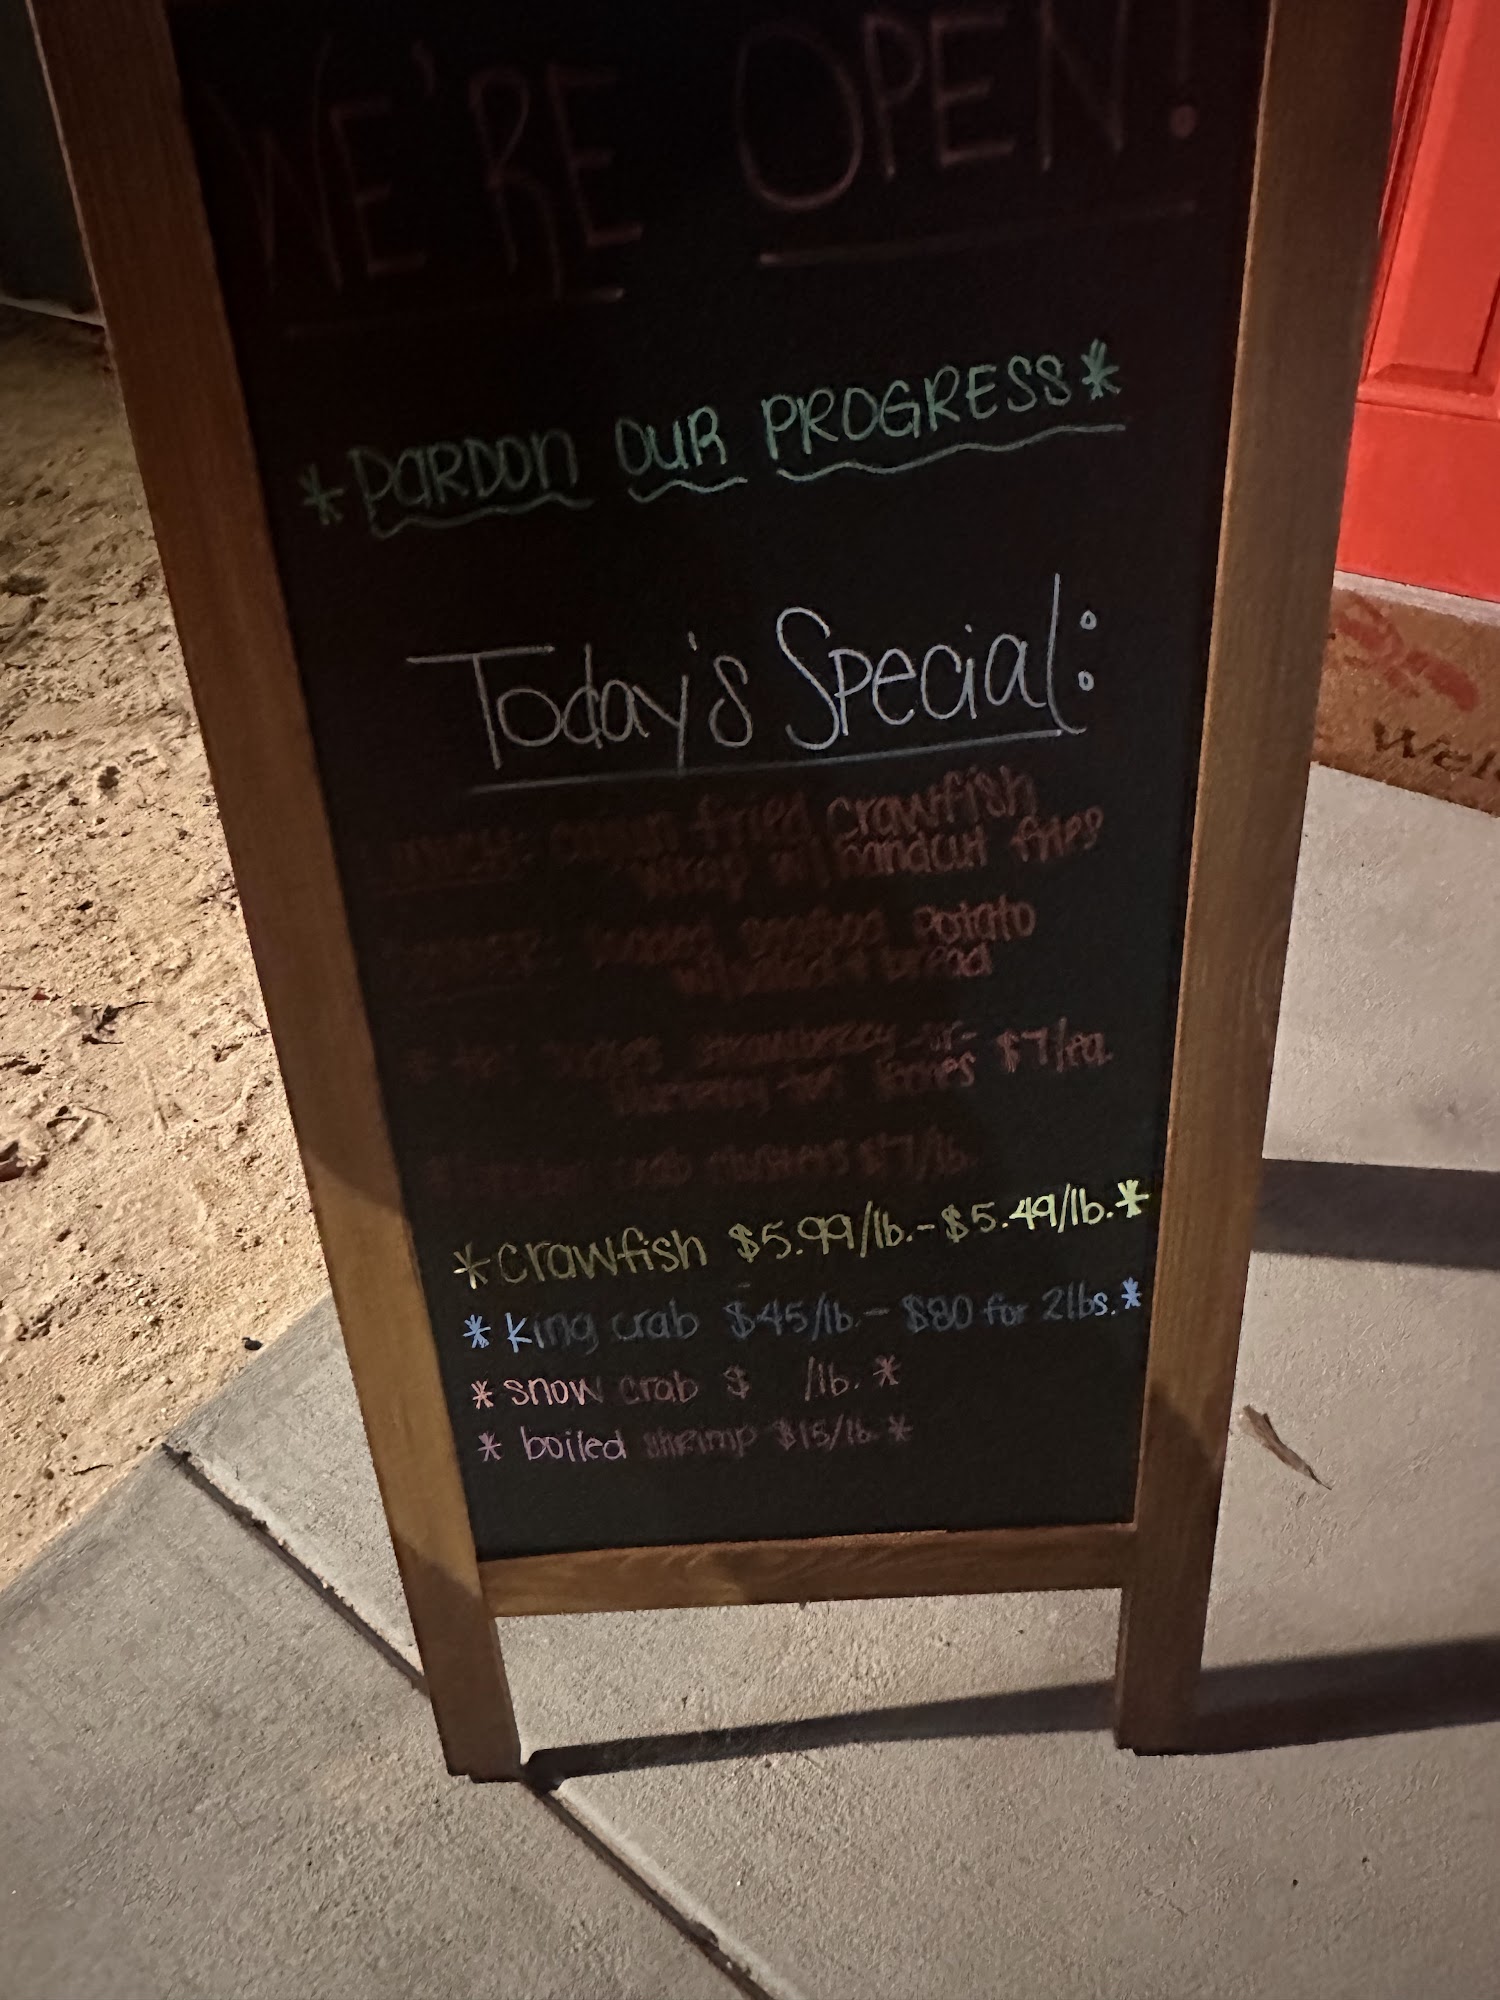 WE'RE OPEN!
*PARDON OUR PROGRESS*
Today's Special:
fried crawfish
wrap w/ handcut fries
loaded seafood potato
w/ salad + bread
strawberry -or-
$7/ea.
crab clusters $17/lb.
*crawfish $5.99/lb.-$5.49/lb.*
*king crab $45/lb - $80 for 2lbs.*
*snow crab $ /lb.*
*boiled shrimp $15/lb*
Wel